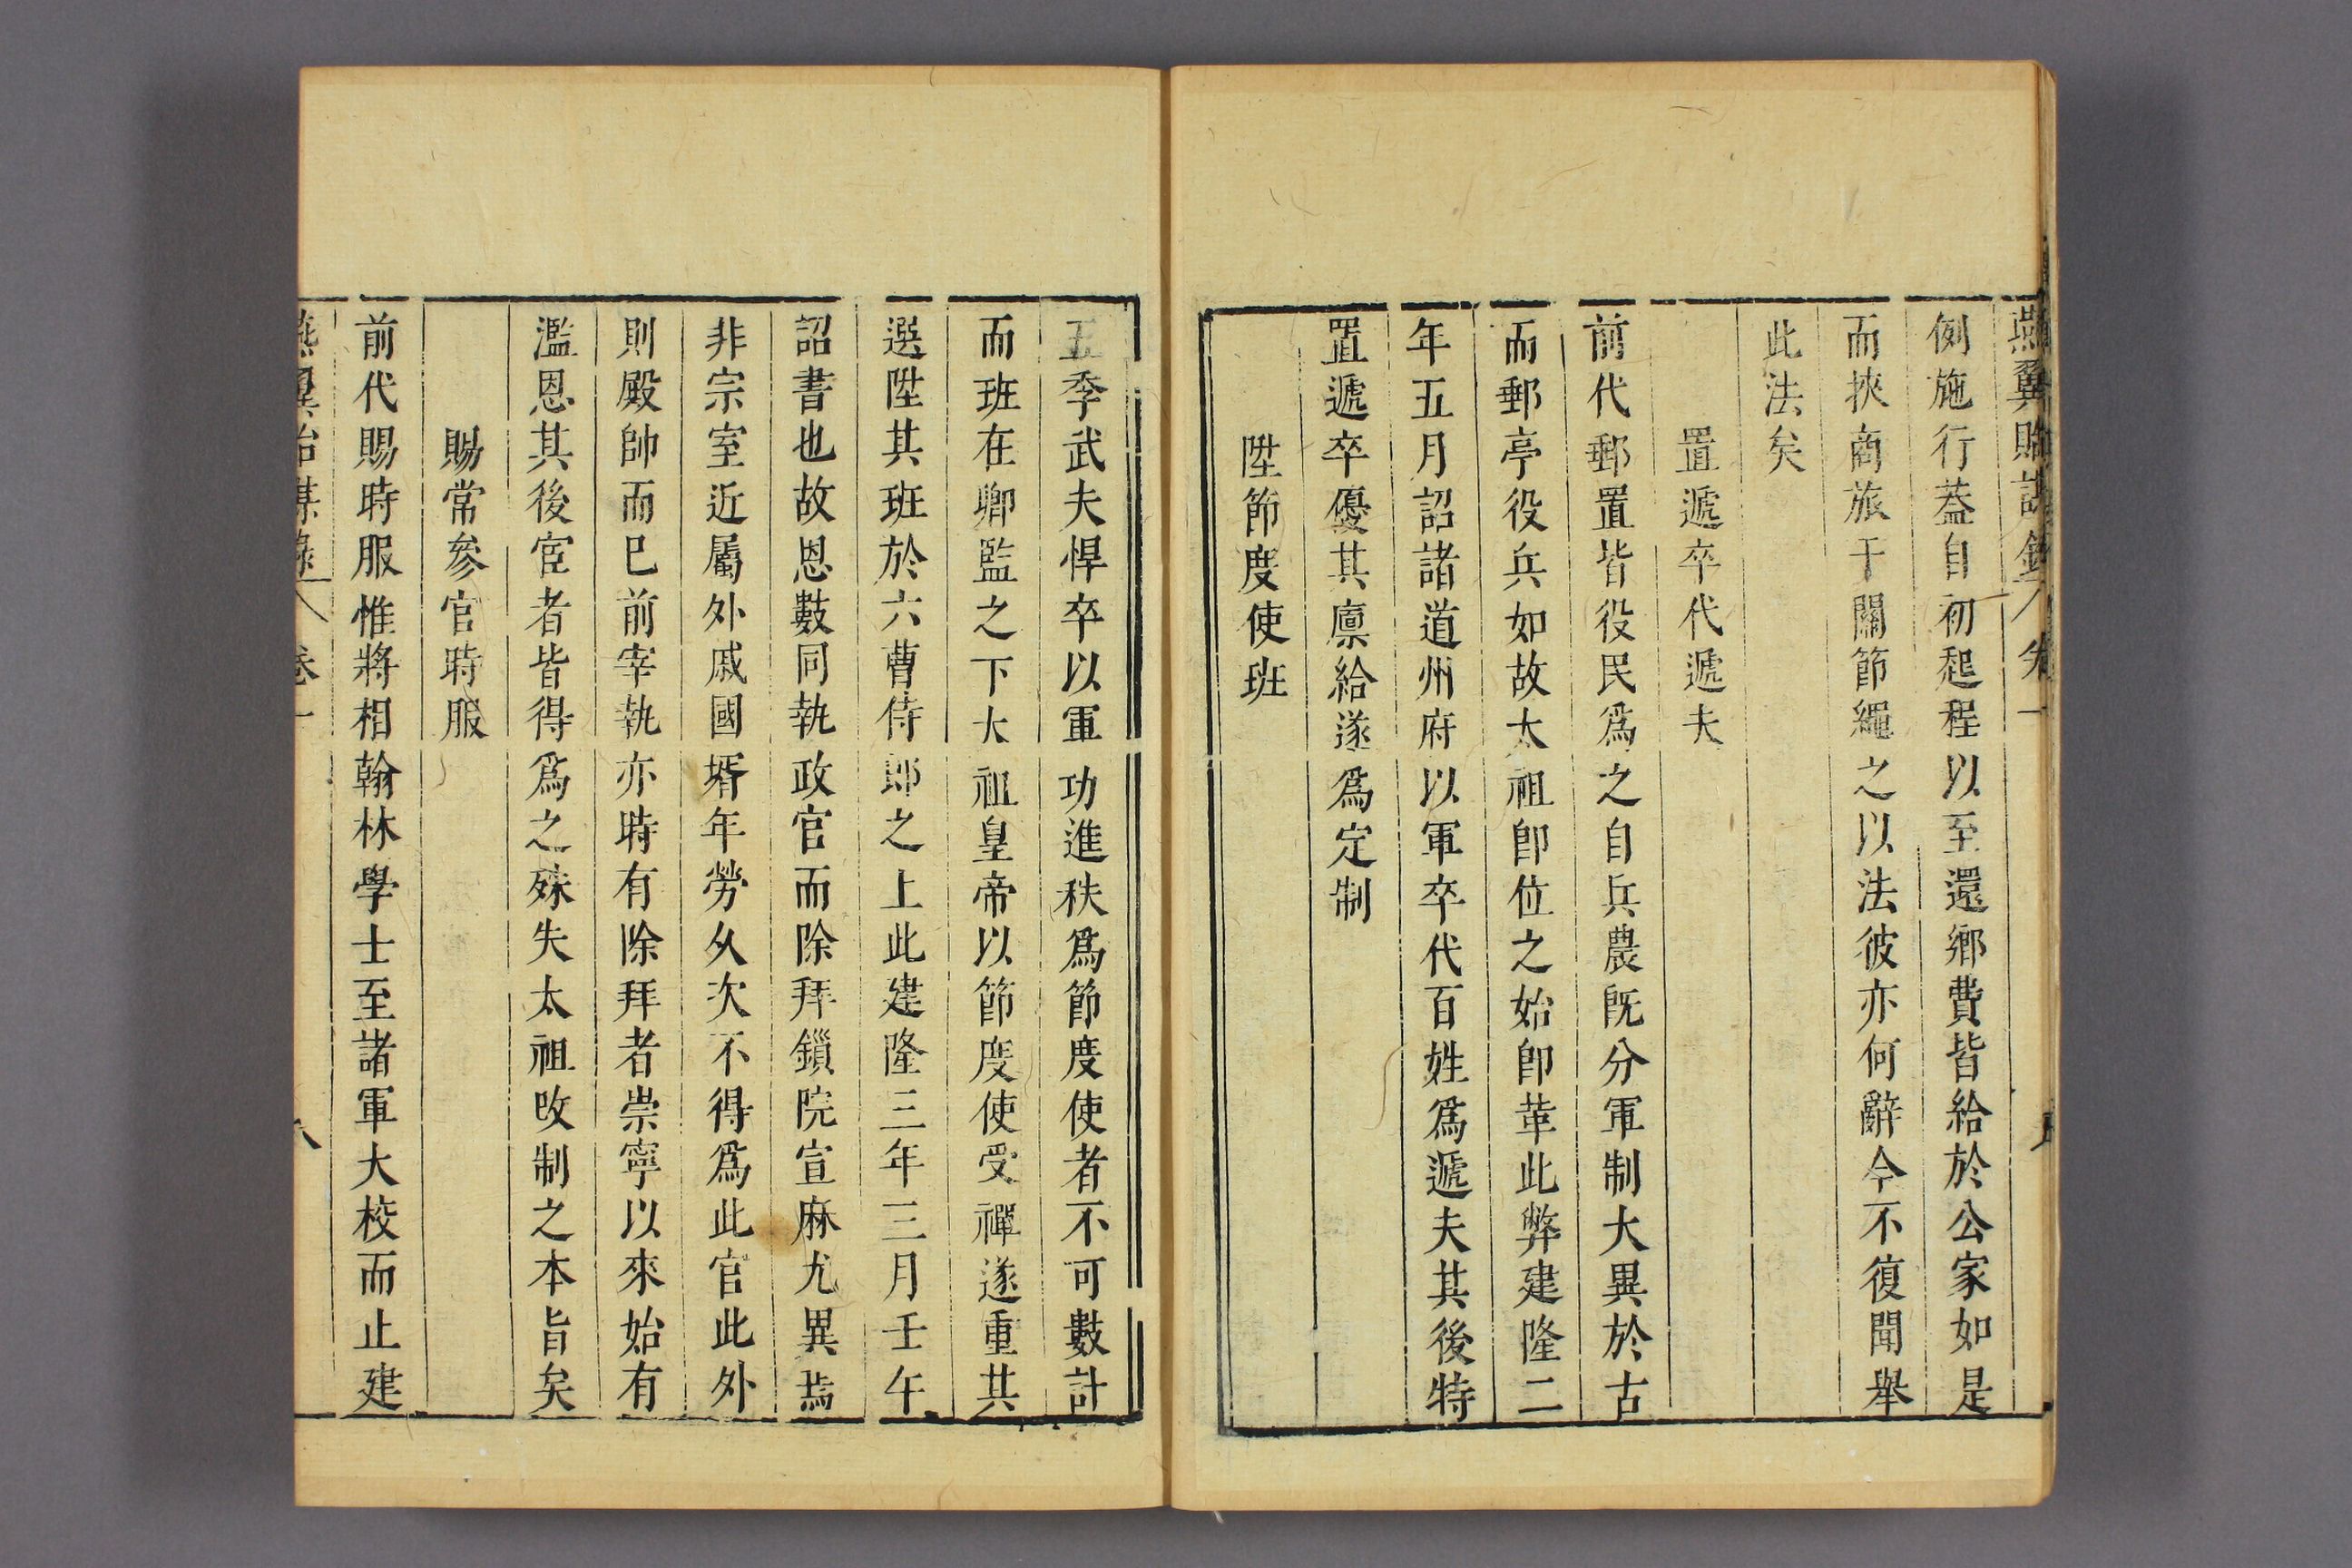 燕翼貽謀錄 卷一
例施行蓋自初起程以至還鄉費皆給於公家如是
而挾商旅干關節繩之以法彼亦何辭今不復聞舉
此法矣
置遞卒代遞夫
前代郵置皆役民爲之自兵農旣分軍制大異於古
而郵亭役兵如故太祖卽位之始卽革此弊建隆二
年五月詔諸道州府以軍卒代百姓爲遞夫其後特
置遞卒優其廪給遂爲定制
陞節度使班
五季武夫悍卒以軍功進秩爲節度使者不可數計
而班在卿監之下太祖皇帝以節度使受禪遂重其
選陞其班於六曹侍郎之上此建隆三年三月壬午
詔書也故恩數同執政官而除拜鎖院宣麻尤異焉
非宗室近屬外戚國壻年勞久次不得爲此官此外
則殿帥而已前宰執亦時有除拜者崇寧以來始有
濫恩其後宦者皆得爲之殊失太祖改制之本旨矣
賜常參官時服
前代賜時服惟將相翰林學士至諸軍大校而止建
燕翼貽謀錄 卷一 八